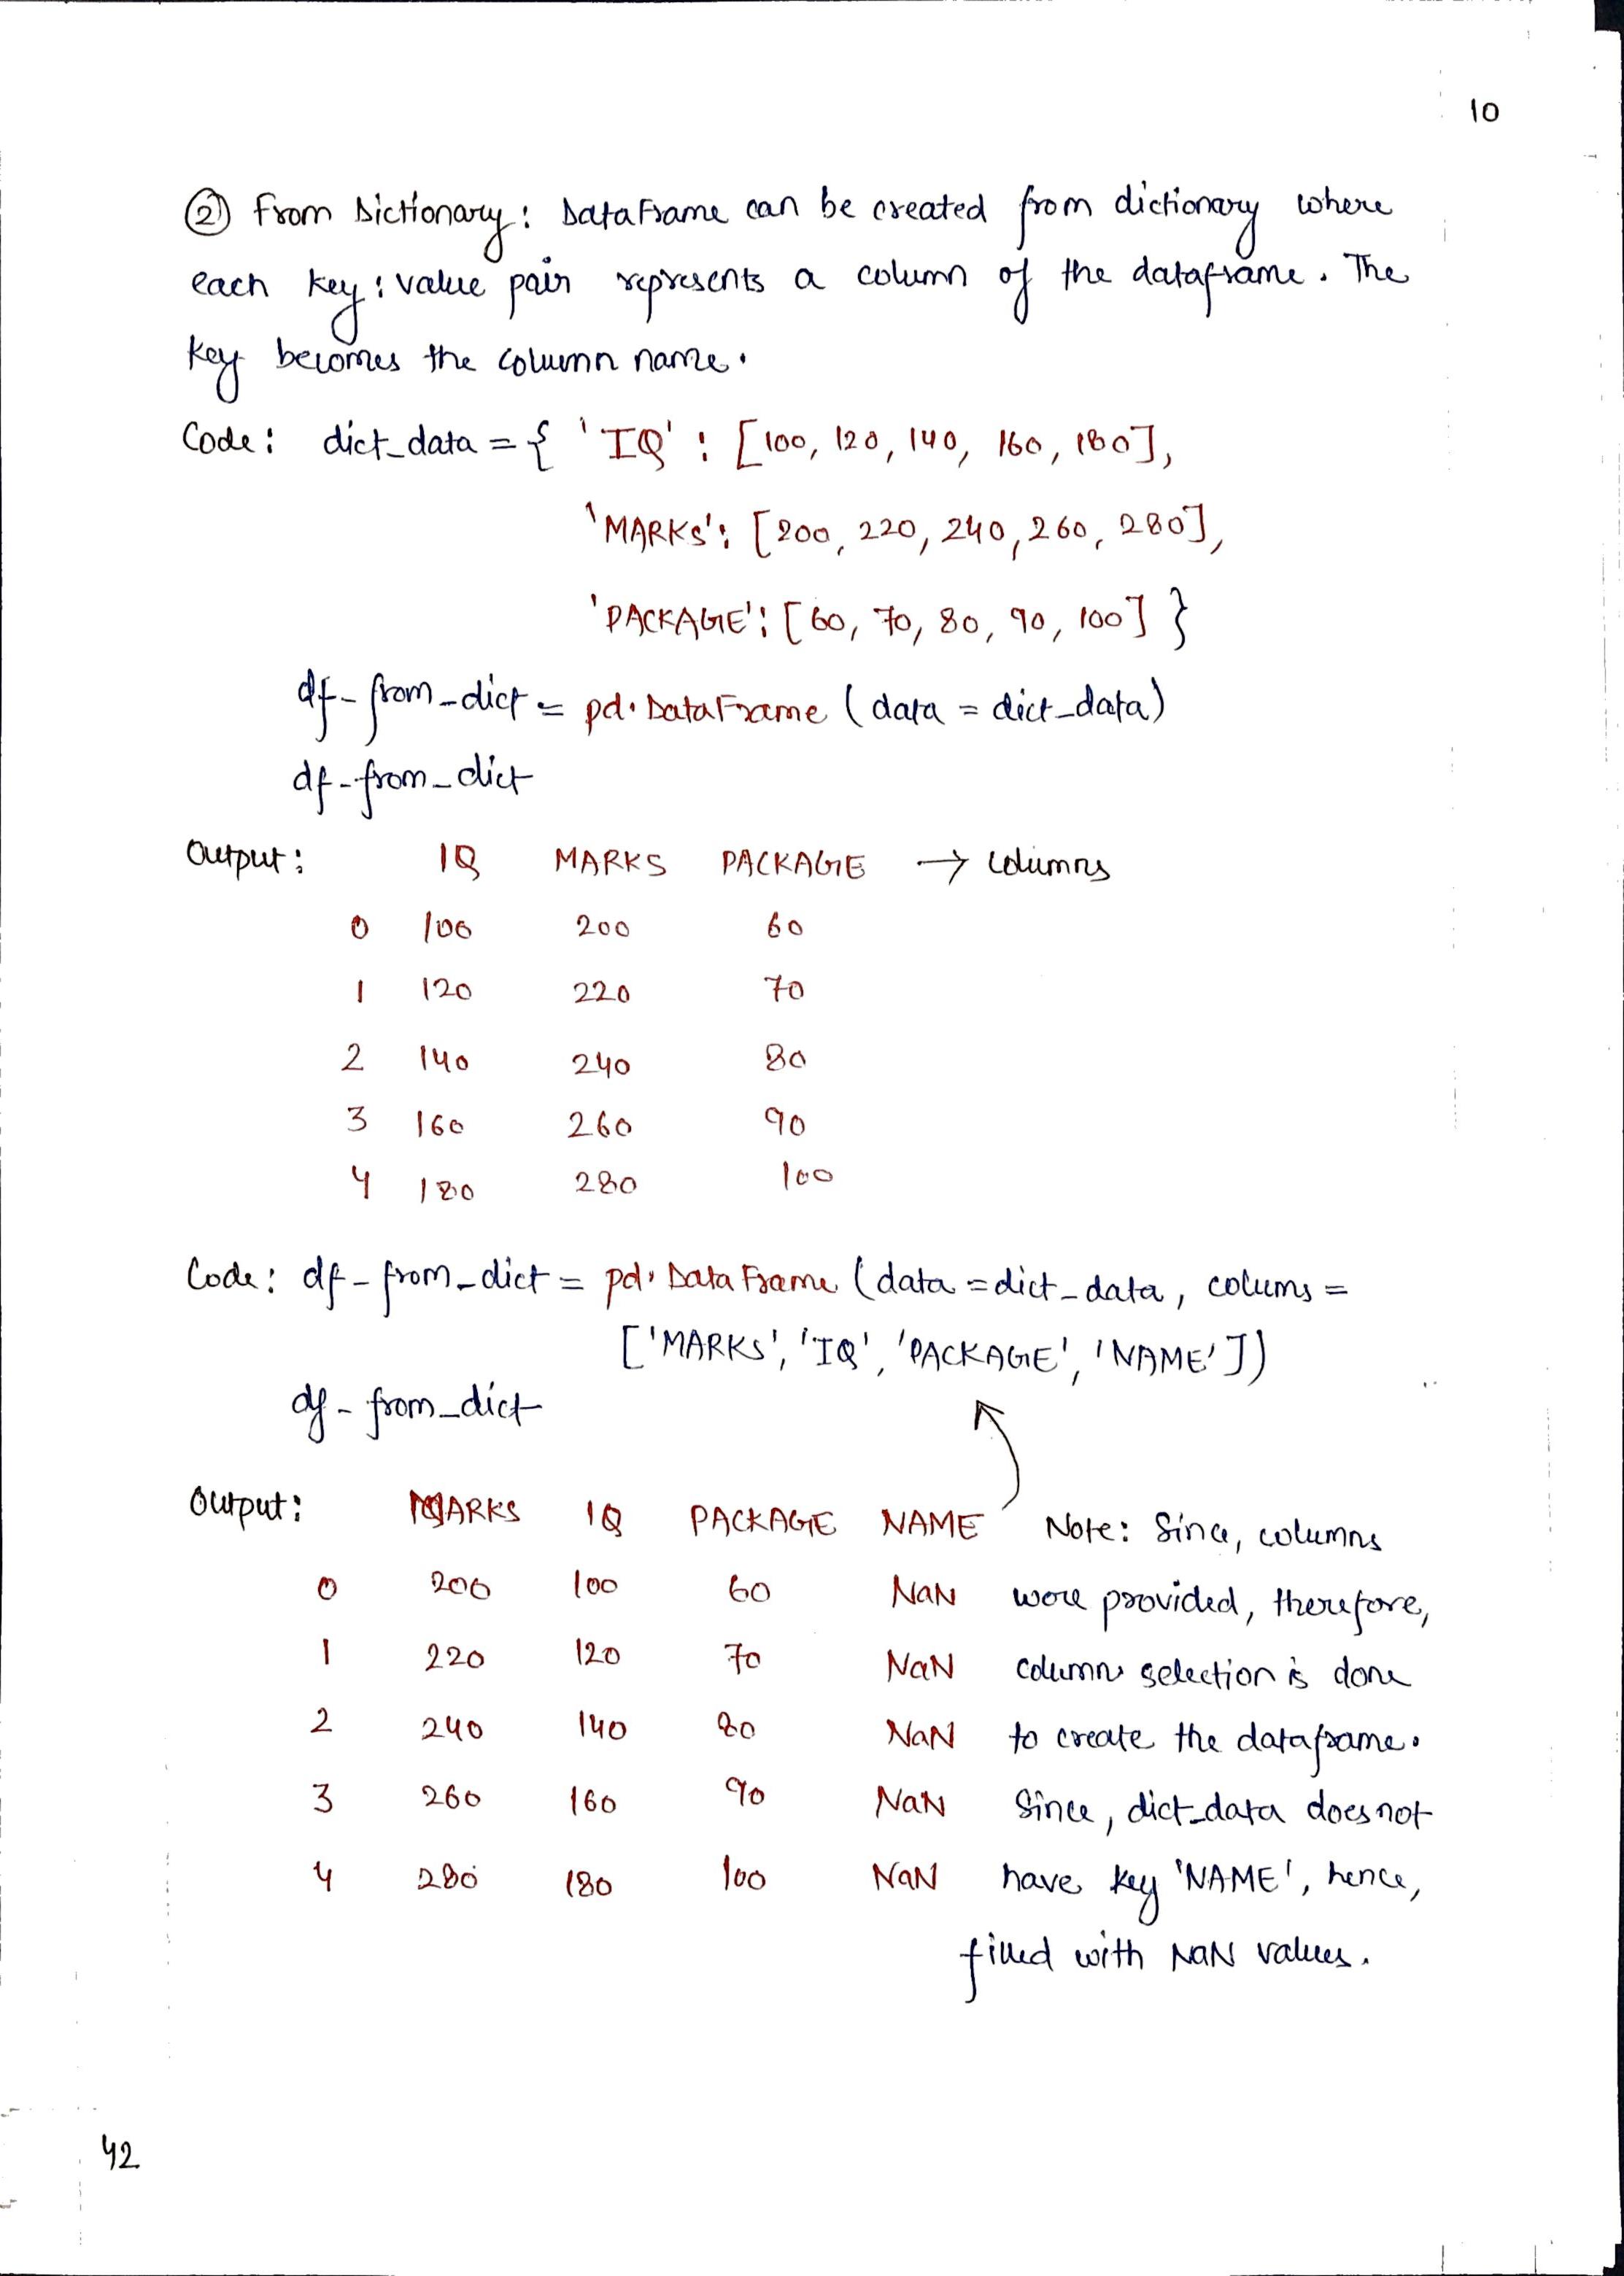 10
② From Dictionary: DataFrame can be created from dictionary where
each key: value pair represents a column of the dataframe. The
key becomes the column name.
Code: dict_data = { 'IQ' : [100, 120, 140, 160, 180],
'MARKS': [200, 220, 240, 260, 280],
'PACKAGE': [60, 70, 80, 90, 100] }
df_from_dict = pd.DataFrame (data = dict_data)
df_from_dict
Output: IQ MARKS PACKAGE → columns
0 100 200 60
1 120 220 70
2 140 240 80
3 160 260 90
4 180 280 100
Code: df_from_dict = pd.DataFrame (data = dict_data, colums =
['MARKS', 'IQ', 'PACKAGE', 'NAME'])
df_from_dict
Output: MARKS IQ PACKAGE NAME Note: Since, columns
0 200 100 60 NaN were provided, therefore,
1 220 120 70 NaN column selection is done
2 240 140 80 NaN to create the dataframe.
3 260 160 90 NaN Since, dict_data does not
4 280 180 100 NaN have key 'NAME', hence,
filled with NaN values.
42